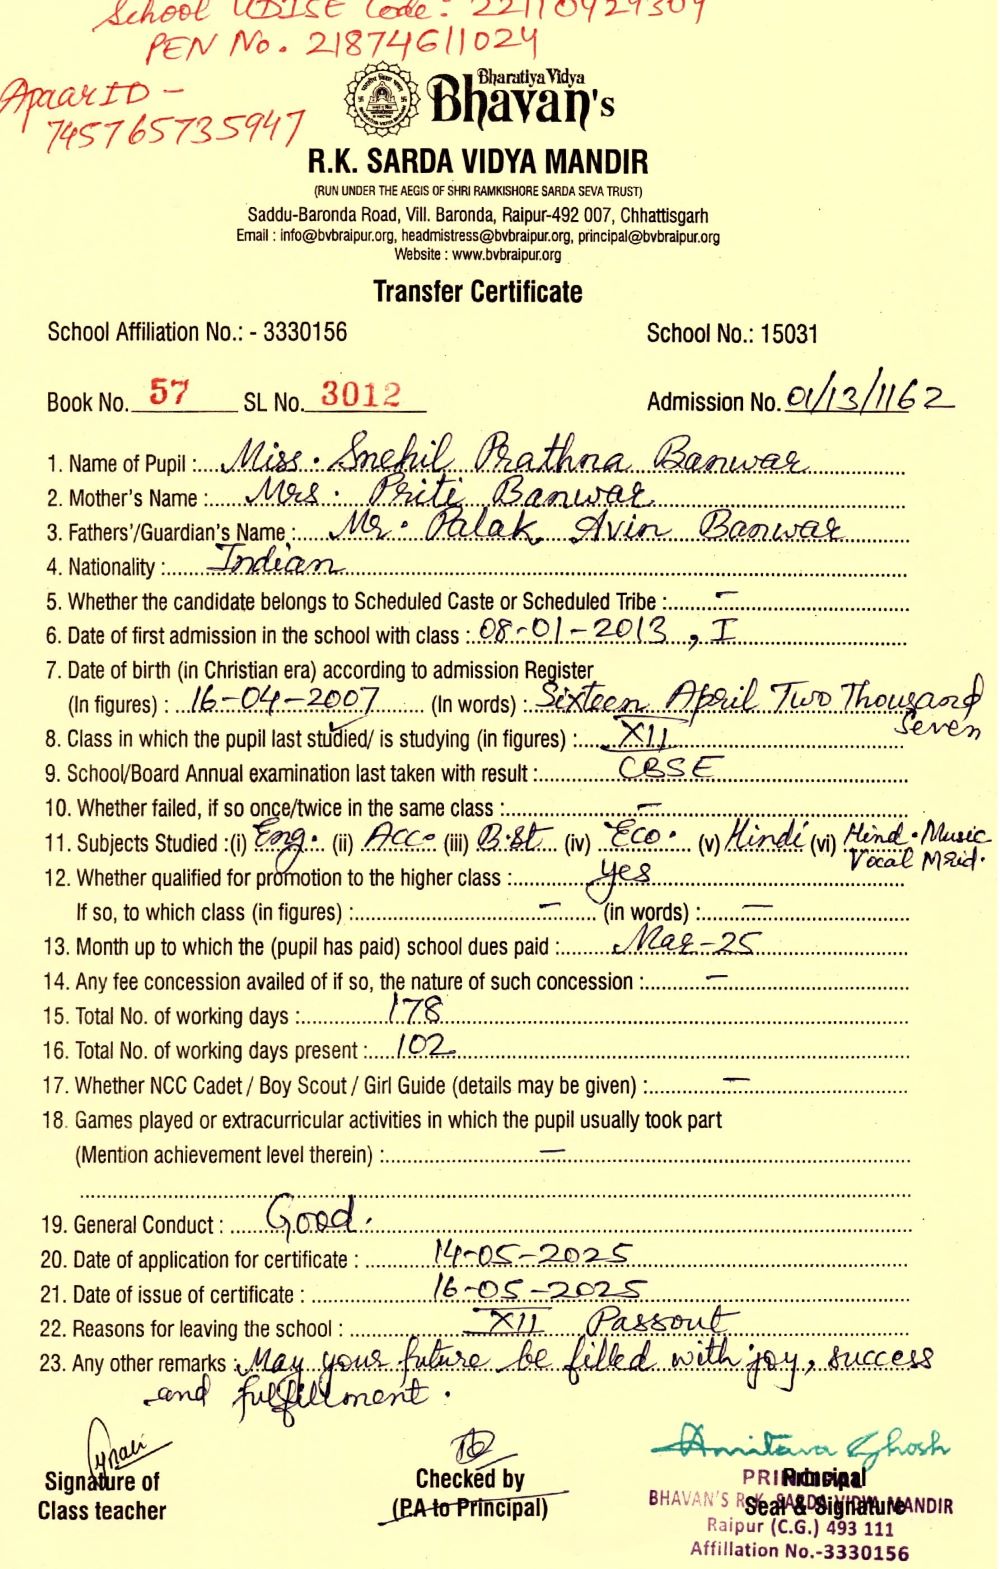 School UDISE Code: 22110929309
PEN No. 21874611024
Apaar ID -
745765735947
Bharatiya Vidya
Bhavan's
R.K. SARDA VIDYA MANDIR
(RUN UNDER THE AEGIS OF SHRI RAMKISHORE SARDA SEVA TRUST)
Saddu-Baronda Road, Vill. Baronda, Raipur-492 007, Chhattisgarh
Email : info@bvbraipur.org, headmistress@bvbraipur.org, principal@bvbraipur.org
Website : www.bvbraipur.org
Transfer Certificate
School Affiliation No.: - 3330156 School No.: 15031
Book No. 57 SL No. 3012 Admission No. 01/13/1162
1. Name of Pupil : Miss. Snehil Prathna Banwar
2. Mother's Name : Mrs. Priti Banwar
3. Fathers'/Guardian's Name : Mr. Palak Avin Banwar
4. Nationality : Indian
5. Whether the candidate belongs to Scheduled Caste or Scheduled Tribe : —
6. Date of first admission in the school with class : 08-01-2013, I
7. Date of birth (in Christian era) according to admission Register
(In figures) : 16-04-2007 (In words) : Sixteen April Two Thousand
Seven
8. Class in which the pupil last studied/ is studying (in figures) : XII
9. School/Board Annual examination last taken with result : CBSE
10. Whether failed, if so once/twice in the same class : —
11. Subjects Studied :(i) Eng. (ii) Acc. (iii) B.st (iv) Eco. (v) Hindi (vi) Hind. Music
Vocal Mrid.
12. Whether qualified for promotion to the higher class : yes
If so, to which class (in figures) : — (in words) : —
13. Month up to which the (pupil has paid) school dues paid : Mar-25
14. Any fee concession availed of if so, the nature of such concession : —
15. Total No. of working days : 178
16. Total No. of working days present : 102
17. Whether NCC Cadet / Boy Scout / Girl Guide (details may be given) : —
18. Games played or extracurricular activities in which the pupil usually took part
(Mention achievement level therein) : —
19. General Conduct : Good.
20. Date of application for certificate : 14-05-2025
21. Date of issue of certificate : 16-05-2025
22. Reasons for leaving the school : XII Passout
23. Any other remarks : May your future be filled with joy, success
and fulfillment.
Amitava Ghosh
Signature of Checked by Principal
Class teacher (P.A to Principal) Seal & Signature
PRINCIPAL
BHAVAN'S R.K. SARDA VIDYA MANDIR
Raipur (C.G.) 493 111
Affillation No.-3330156